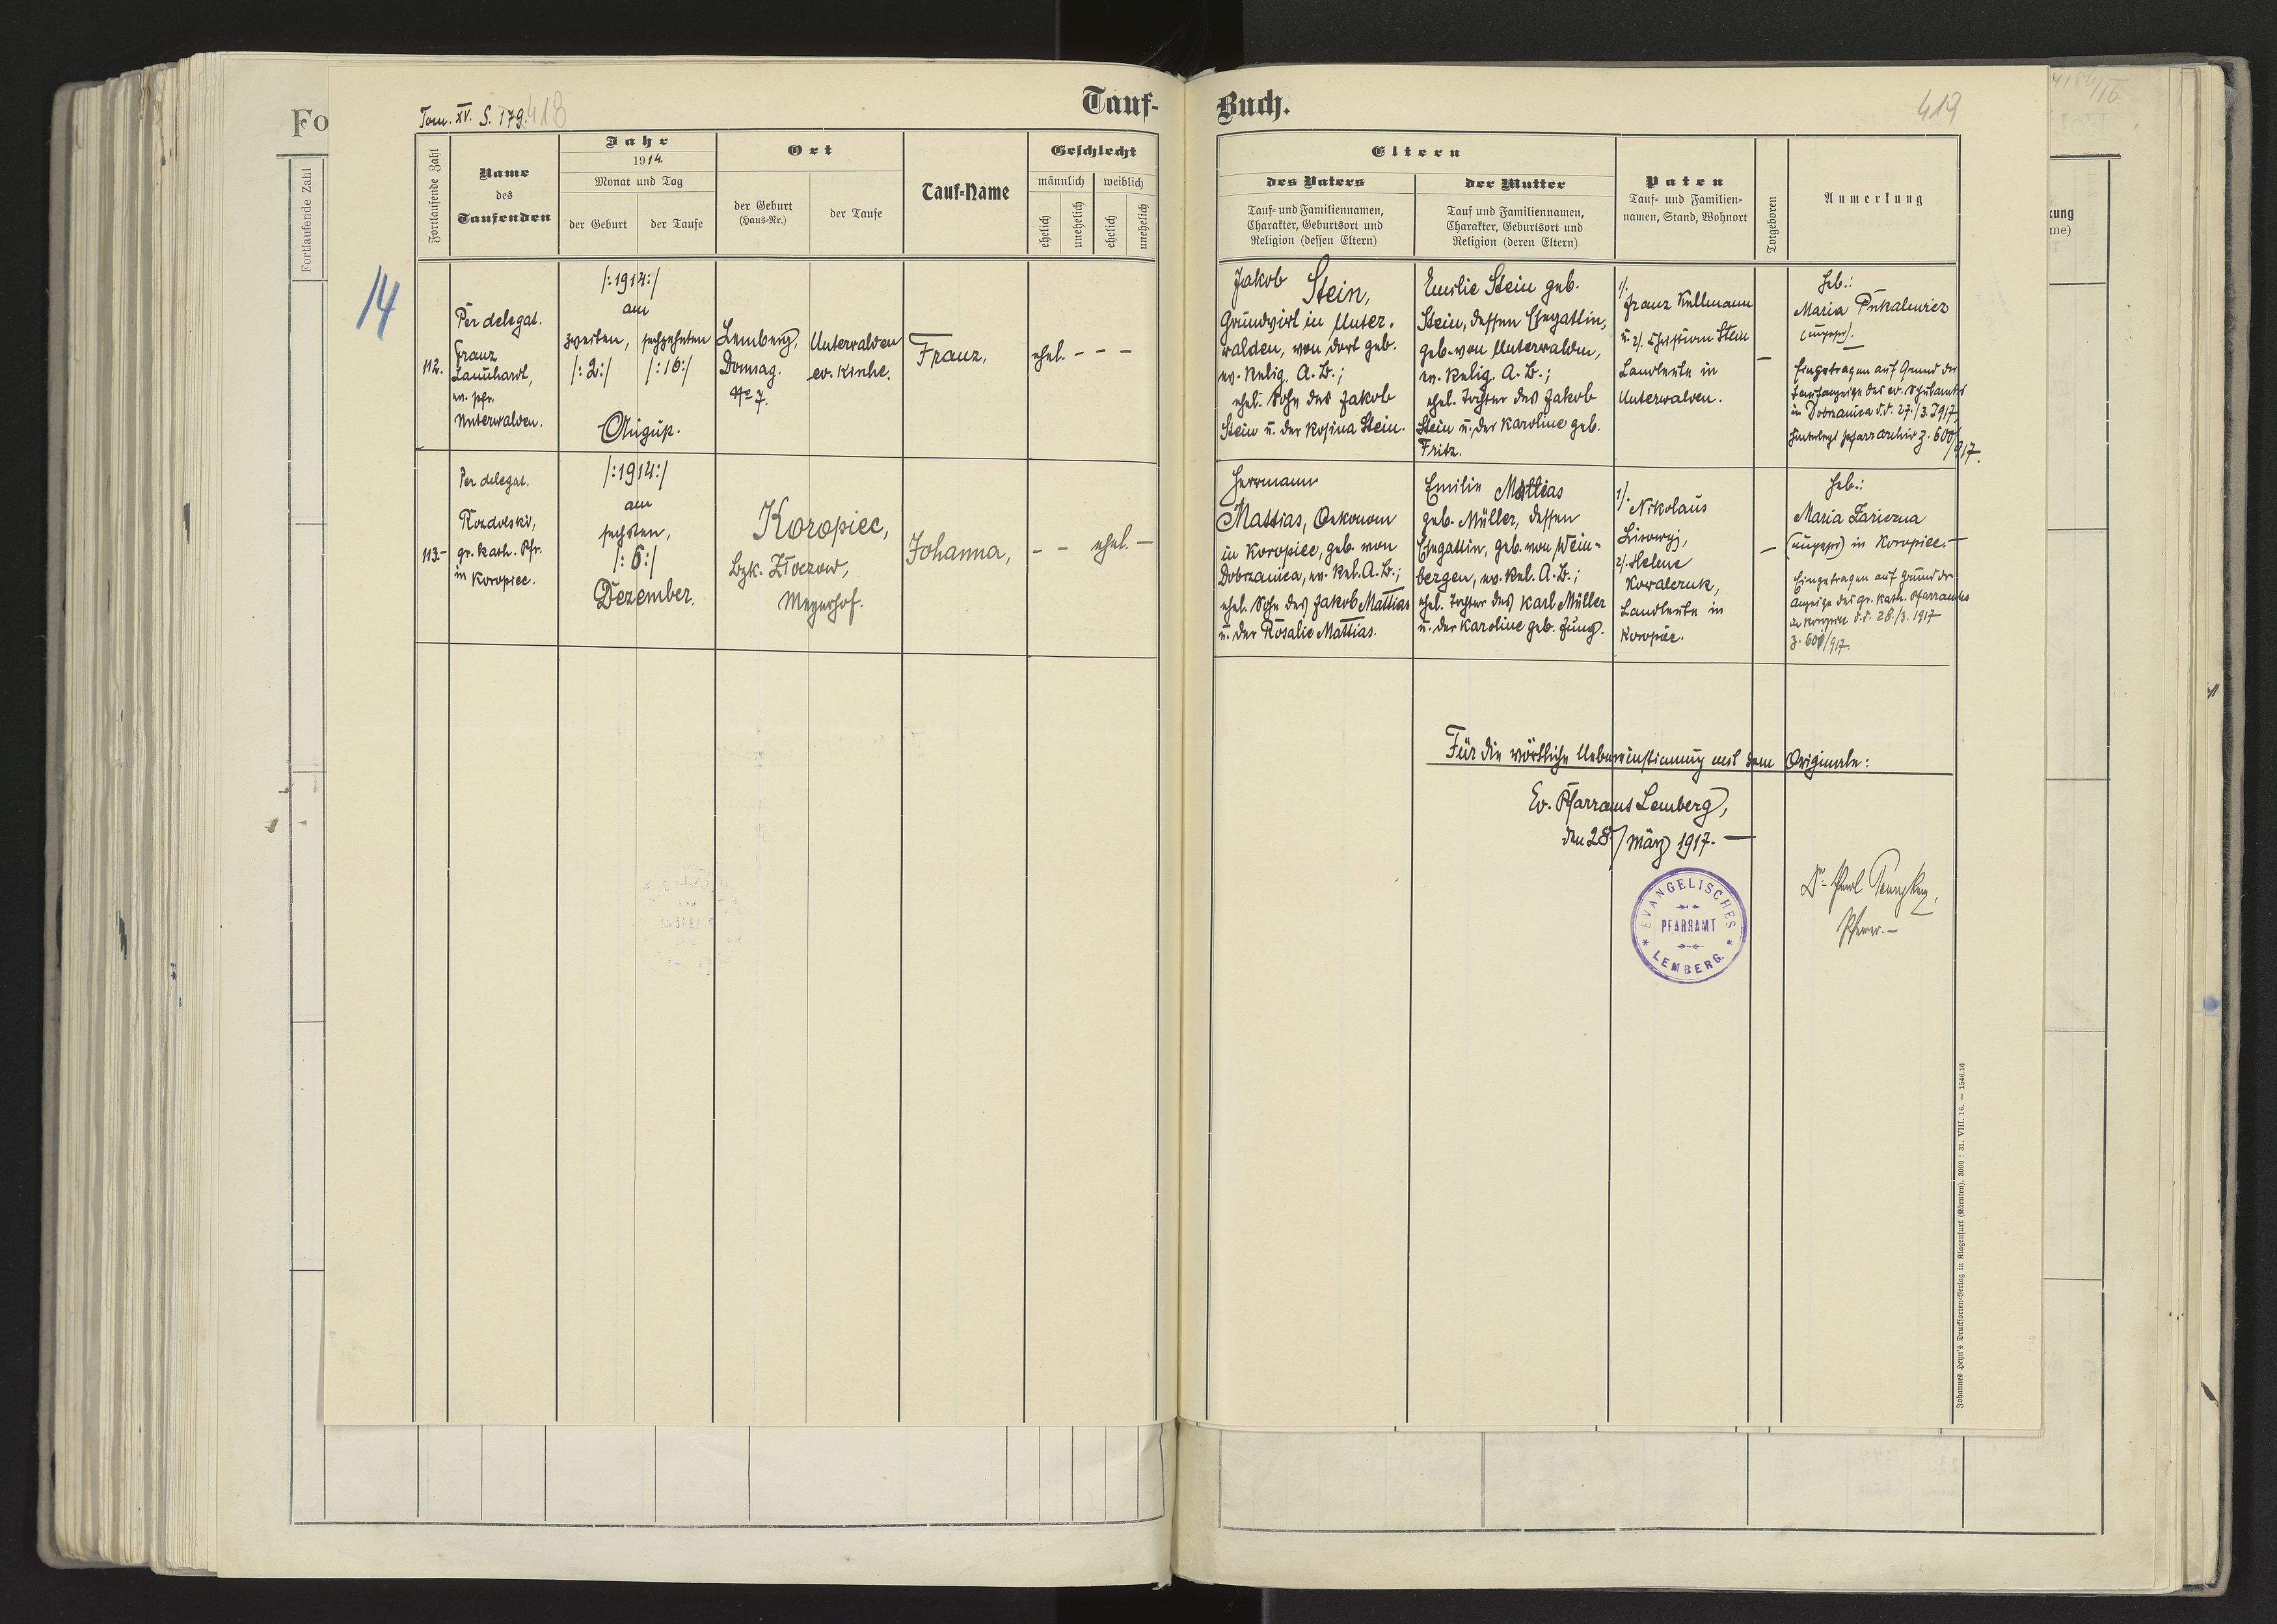 Tom. XV. S. 179.
418
Tauf-
Fo
Fortlaufende Zahl
Fortlaufende Zahl
Name
des
Taufenden
Jahr
1914.
Monat und Tag
der Geburt
der Taufe
Ort
der Geburt
(Haus-Nr.)
der Taufe
Tauf-Name
Geschlecht
männlich
weiblich
ehelich
unehelich
ehelich
unehelich
14
112.
Per delegat.
Franz
Launhardt,
ev. Pfr.
Unterwalden.
/:1914:/
am
zweiten,
/:2:/
sechzehnten
/:16:/
August.
Lemberg,
Domag.
No 7.
Unterwalden
ev. Kirche.
Franz,
ehel. - - -
113.-
Per delegat.
Rozdolski,
gr. kath. Pfr.
in Koropiec.
/:1914:/
am
sechsten,
/:6:/
Dezember.
Koropiec,
Bzk. Złoczow,
Meyerhof.
Johanna,
- - ehel. -
Buch.
419
Eltern
des Vaters
Tauf- und Familiennamen,
Charakter, Geburtsort und
Religion (dessen Eltern)
der Mutter
Tauf und Familiennamen,
Charakter, Geburtsort und
Religion (deren Eltern)
Paten
Tauf- und Familien-
namen, Stand, Wohnort
Totgeboren
Anmerkung
kung
me)
Jakob
Stein,
Grundwirt in Unter-
walden, von dort geb.
ev. Relig. A. B.;
ehel. Sohn des Jakob
Stein u. der Rosina Stein.
Emilie Stein geb.
Stein, dessen Ehegattin,
geb. von Unterwalden,
ev. Relig. A. B.;
ehel. Tochter des Jakob
Stein u. der Karoline geb.
Fritz.
1/.
Franz Kullmann
u. 2/. Christian Stein
Landleute in
Unterwalden.
—
Heb.:
Maria
(ungepr.).
Eingetragen auf Grund der
Taufanzeige des ev.
in Dobrzanica d.d. 27./3. 1917,
hinterlegt Pfarrarchiv Z. 600/917.
Herrmann
Mattias, Oekonom
in Koropiec, geb. von
Dobrzanica, ev. Rel. A. B.;
ehel. Sohn des Jakob Mattias
u. der Rosalie Mattias.
Emilie Mattias
geb. Müller, dessen
Ehegattin, geb. von Wein-
bergen, ev. Rel. A. B.;
ehel. Tochter des Karl Müller
u. der Karoline geb. Jung.
1/. Nikolaus
Lisowyj,
2/. Helene
Kowalczuk,
Landleute in
Koropiec.
—
Heb.:
Maria Zariczna
(ungepr.) in Koropiec. —
Eingetragen auf Grund der
Anzeige des gr. kath. Pfarramtes
in Koropiec d.d. 28./3. 1917
Z. 601/917.
Für die wörtliche Uebereinstimmung mit dem Originale:
Ev. Pfarramt Lemberg,
den 28/ März 1917. —
EVANGELISCHES
PFARRAMT
LEMBERG.
Pfarrer. —
Johannes Heyn's Drucksorten-Verlag in Klagenfurt (Kärnten). 3000 : 31. VIII. 16. — 1546.16